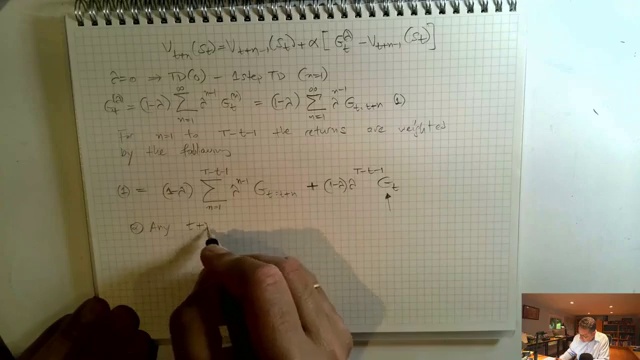 V_{t+n}(S_t) = V_{t+n-1}(S_t) + α [ G_t^{(λ)} - V_{t+n-1}(S_t) ]
λ=0 ⇒ TD(0) - 1 step TD (n=1)
G_t^{(λ)} = (1-λ) ∑_{n=1}^{∞} λ^{n-1} G_t^{(n)} = (1-λ) ∑_{n=1}^{∞} λ^{n-1} G_{t:t+n} (1)
For n=1 to T-t-1 the returns are weighted
by the following
(1) = (1-λ) ∑_{n=1}^{T-t-1} λ^{n-1} G_{t:t+n} + (1-λ) λ^{T-t-1} G_t
Any t+